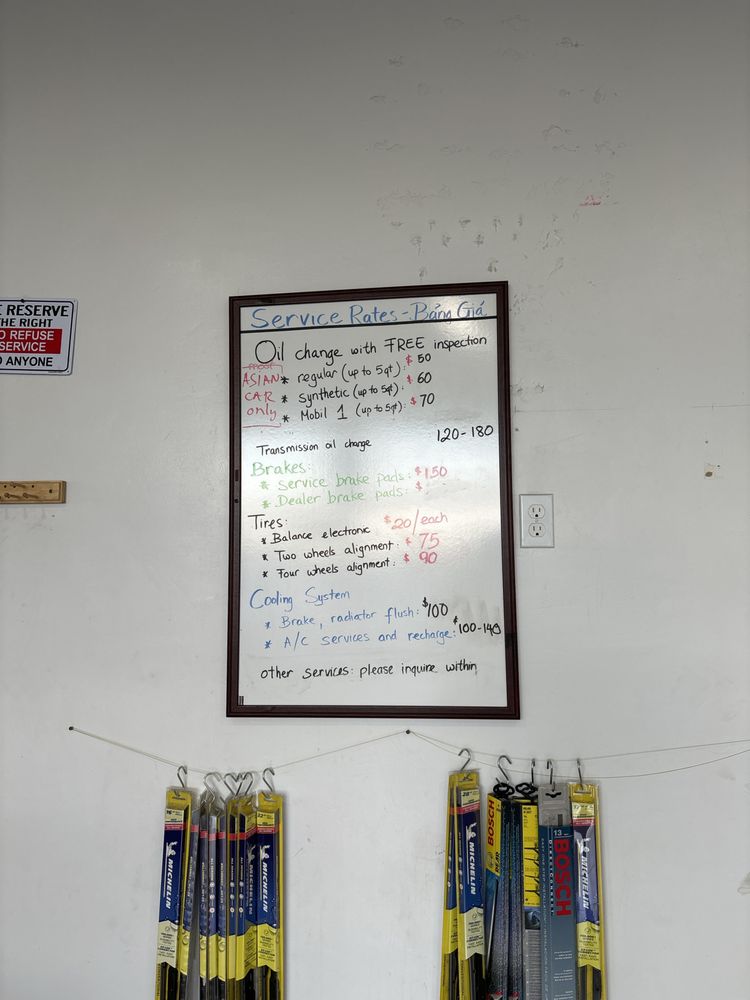 E RESERVE
THE RIGHT
O REFUSE
SERVICE
O ANYONE
Service Rates - Bảng Giá
Oil change with FREE inspection
most
ASIAN
CAR
only
* regular (up to 5qt): $50
* synthetic (up to 5qt): $60
* Mobil 1 (up to 5qt): $70
Transmission oil change 120-180
Brakes:
* Service brake pads: $150
* Dealer brake pads: $
Tires:
* Balance electronic $20/each
* Two wheels alignment: $75
* Four wheels alignment: $90
Cooling System
* Brake, radiator flush: $100
* A/C services and recharge: $100-140
other services: please inquire within
MICHELIN
MICHELIN
MICHELIN
MICHELIN
BOSCH
13
BOSCH
MICHELIN